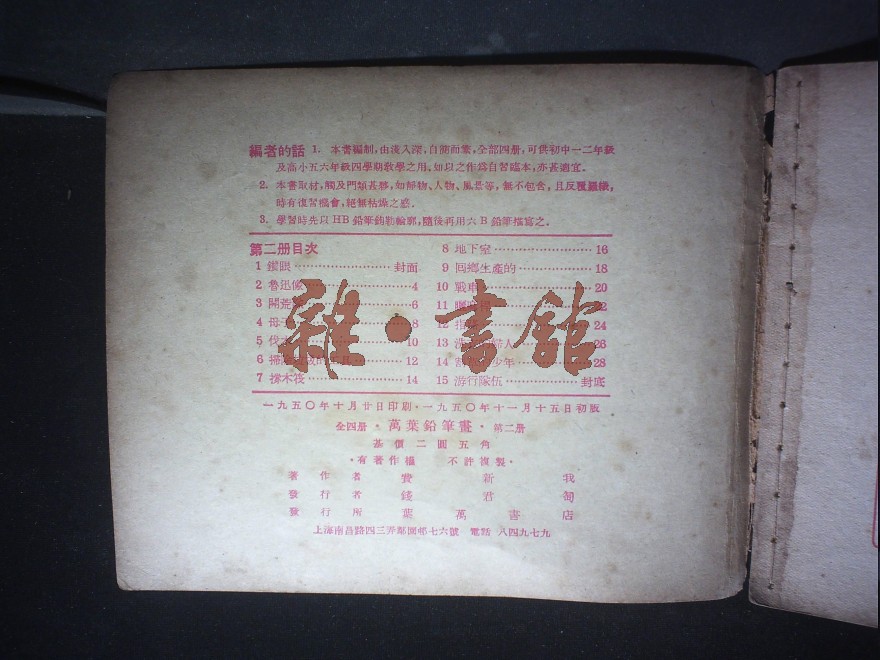 編者的話 1. 本書編制,由淺入深,自簡而繁,全部四册,可供初中一二年級
及高小五六年級四學期敎學之用,如以之作爲自習臨本,亦甚適宜.
2. 本書取材,觸及門類甚夥,如靜物、人物、風景等,無不包含,且反覆
時有復習機會,絕無枯燥之感.
3. 學習時先以HB鉛筆鈎勒輪廓,隨後再用六B鉛筆描寫之.
第二册目次
1 鑽眼 封面
2 魯迅像 4
3 開荒 6
4 母子 8
5 伐 10
6 掃 12
7 撐木筏 14
8 地下室 16
9 回鄉生產的 18
10 戰車 20
11
12 24
13 人 26
14 少年 28
15 游行隊伍 封底
雜·書館
一九五〇年十月廿日印刷·一九五〇年十一月十五日初版
全四册·萬葉鉛筆畫·第二册
基價二圓五角
·有著作權 不許複製·
著作者 費新我
發行者 錢君匋
發行所 萬葉書店
上海南昌路四三弄鄰園邨七六號 電話 八四九七九